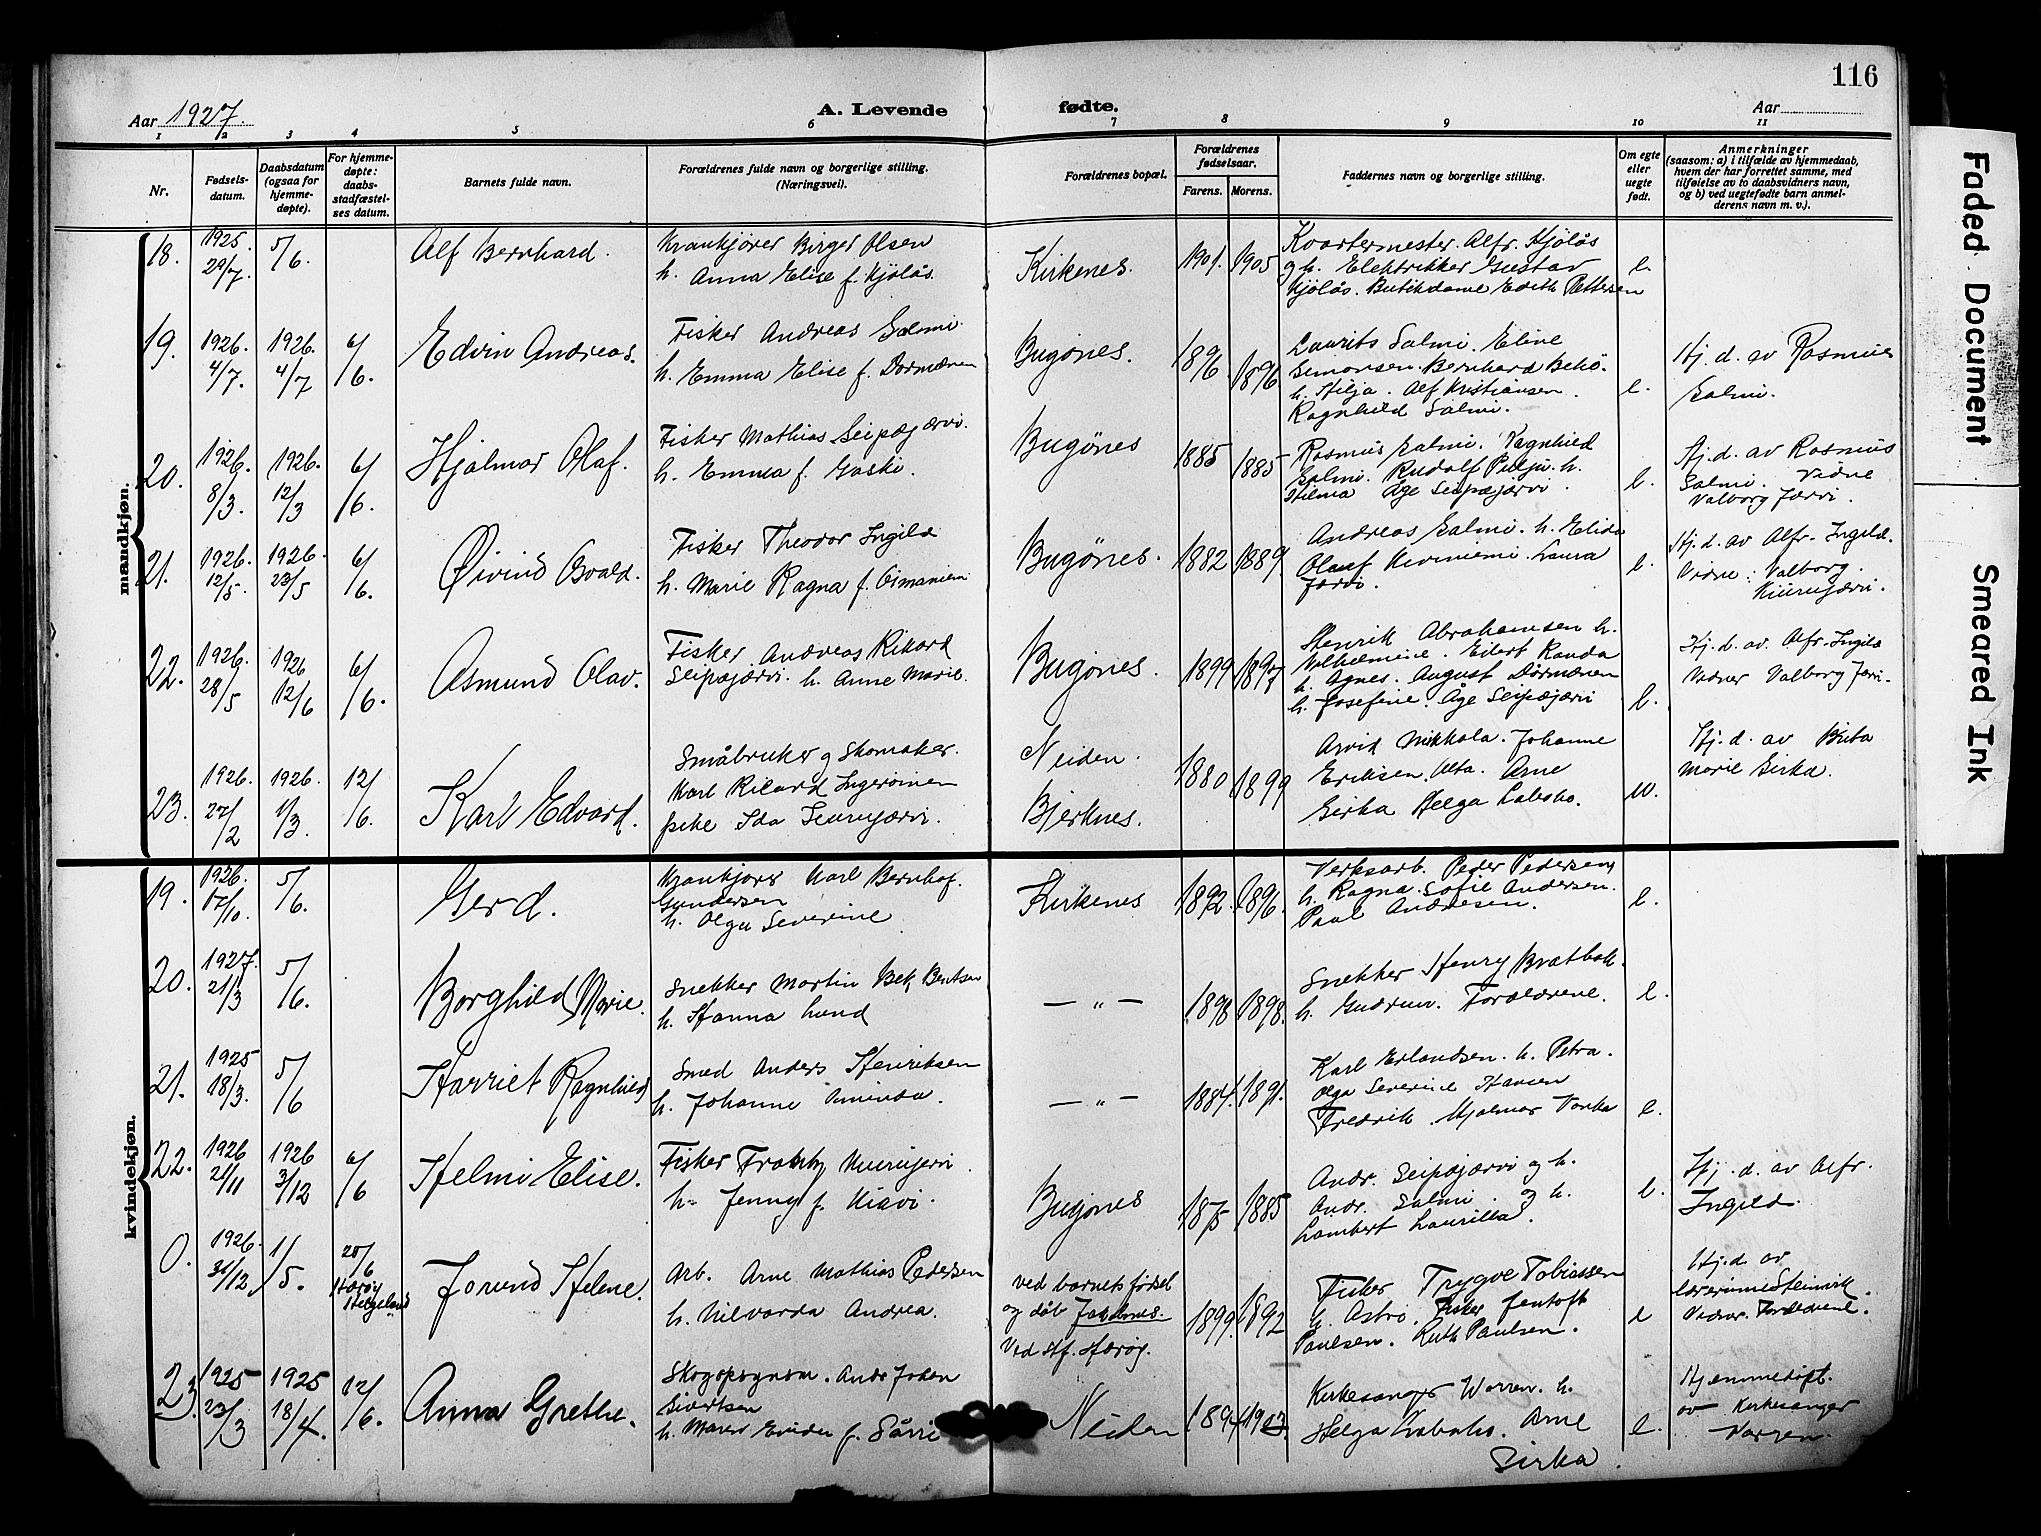 116
Aar 1927.
A. Levende fødte.
Aar
1 2 3 4 5 6 7 8 9 10 11
Nr.
Fødsels-
datum.
Daabsdatum
(ogsaa for
hjemme-
døpte).
For hjemme-
døpte:
daabs-
stadfæstel-
ses datum.
Barnets fulde navn.
Forældrenes fulde navn og borgerlige stilling.
(Næringsvei).
Forældrenes bopæl.
Forældrenes
fødselsaar.
Farens. Morens.
Faddernes navn og borgerlige stilling.
Om egte
eller
uegte
født.
Anmerkninger
(saasom: a) i tilfælde av hjemmedaab,
hvem der har forrettet samme, med
tilføielse av to daabsvidners navn,
og b) ved uegtefødte barn anmel-
derens navn m. v.).
mandkjøn.
18.
1925
29/7.
5/6.
Alf Bernhard.
Krankjører Birger Olsen
h. Anna Elise f. Kjölås.
Kirkenes.
1901. 1905
Kvartermester Alfr. Kjölås
g h. Elektrikker Gustav
Kjölås. Butikdame Edith Pettersen
e.
19.
1926.
4/7.
1926.
4/7
6/6.
Edvin Andreas.
Fisker Andreas Salmi.
h. Emma Elise f. Dormænen
Bugönes.
1896. 1896
Laurits Salmi. Eline
Simonsen. Bernhard Behö.
h. Hilja. Alf Kristiansen.
Ragnhild Salmi.
e.
Hj. d. av Rasmus
Salmi.
20.
1926.
8/3.
1926.
12/3
6/6.
Hjalmar Olaf.
Fisker Mathias Seipæjærvi.
h. Emma f. Gaski.
Bugönes
1885 1885
Rasmus Salmi. Ragnhild
Salmi. Rudolf Pulju. h.
Hilma Åge Seipæjærvi.
e.
Hj. d. av Rasmus
Salmi. Vidne
Valborg Jærvi.
21.
1926.
12/5
1926.
23/5
6/6.
Øivind Osvald.
Fisker Theodor Ingilæ
h. Marie Ragna f. Osmaniemi
Bugönes.
1882 1889.
Andreas Salmi. h. Elida
Olauf Kivinιemi. Laura
Jærvi.
e.
Hj. d. av Alfr. Ingilæ.
Vidne: Valborg
Kiurujærvi.
22.
1926.
28/5
1926
12/6
6/6.
Asmund Olav.
Fisker Andreas Rikard
Seipæjærvi. h. Anne Marie.
Bugönes.
1899 1897
Henrik Abrahamsen h.
Vilhelmine. Eilert Randa
h. Agnes. August Dörmænen
h. Josefine. Åge Seipæjærvi
e.
Hj. d. av. Alfr. Ingilæ
Vidner Valborg Jærvi.
23.
1926.
27/2
1926.
1/3.
12/6.
Karl Edvard.
Småbruker g Skomaker.
Karl Rikard Ingeroinen
pike Ida Seurujærvi.
Neiden.
Bjerknes.
1880 1899
Arvid Mikkola. Johanne
Eriksen. Uta. Arne
Sirka Helga Labaho.
u.
Hj. d. av Brita
Marie Sirka.
kvindekjøn.
19.
1926.
17/10.
5/6.
Gerd.
Krankjører Karl Bernhof.
Gundersen
h. Olga Severine
Kirkenes
1892. 1896.
Verksarb. Peder Pedersen
h. Ragna. Sofie Andersen.
Paul Andresen.
e.
20.
1927.
21/3
5/6.
Borghild Marie.
Snekker Martin Bek Bentsen
h. Hanna Lund
— „ —
1898 1898.
Snekker Henry Bratbak.
h. Gudrun. Forældrene.
e.
21.
1925
18/3.
5/6
Harriet Ragnhild
Smed Anders Henriksen
h. Johanne Aminda.
— „ —
1884. 1891.
Karl Erlandsen. h. Petra.
Olga Severine Hansen
Fredrik. Hjalmar Vonka
e.
22.
1926
21/11
1926
3/12
6/6
Helmi Elise.
Fisker Kiurujervi.
h. Jenny f. Kiavi.
Bugönes
1875 1885
Andr. Seipæjærvi og h.
Andr. Salmi og h.
Lambert Laurilla.
e.
Hj. d. av Alfr.
Ingilæ.
0.
1926.
31/12
1/5.
20/6
Herøy
Helgeland
Jorund Helene.
Arb. Arne Mathias Pedersen
h. Nilvarda Andrea.
ved barnets födsel
og dåb Jakobsnes.
Ved stf. Herøy.
1899. 1892
Fisker Trygve Tobiassen
h. Astrɩ. Fisker Jentoft
Paulsen. Ruth Paulsen.
e
Hj. d. av
lærerinne Steinvik.
Vidner. Forældrene.
23.
1925
23/3
1925
18/4.
12/6.
Anna Grethe.
Skogopsynsm. Andr Johan
Sivertsen
h. Maren Evida f. Sårri
Neiden
1894 1903.
Kirkesanger Warren. h.
Helga Labaho. Arne
Sirka.
e.
Hjemmedöpt.
av Kirkesanger
Varren.
Faded Document
Smeared Ink